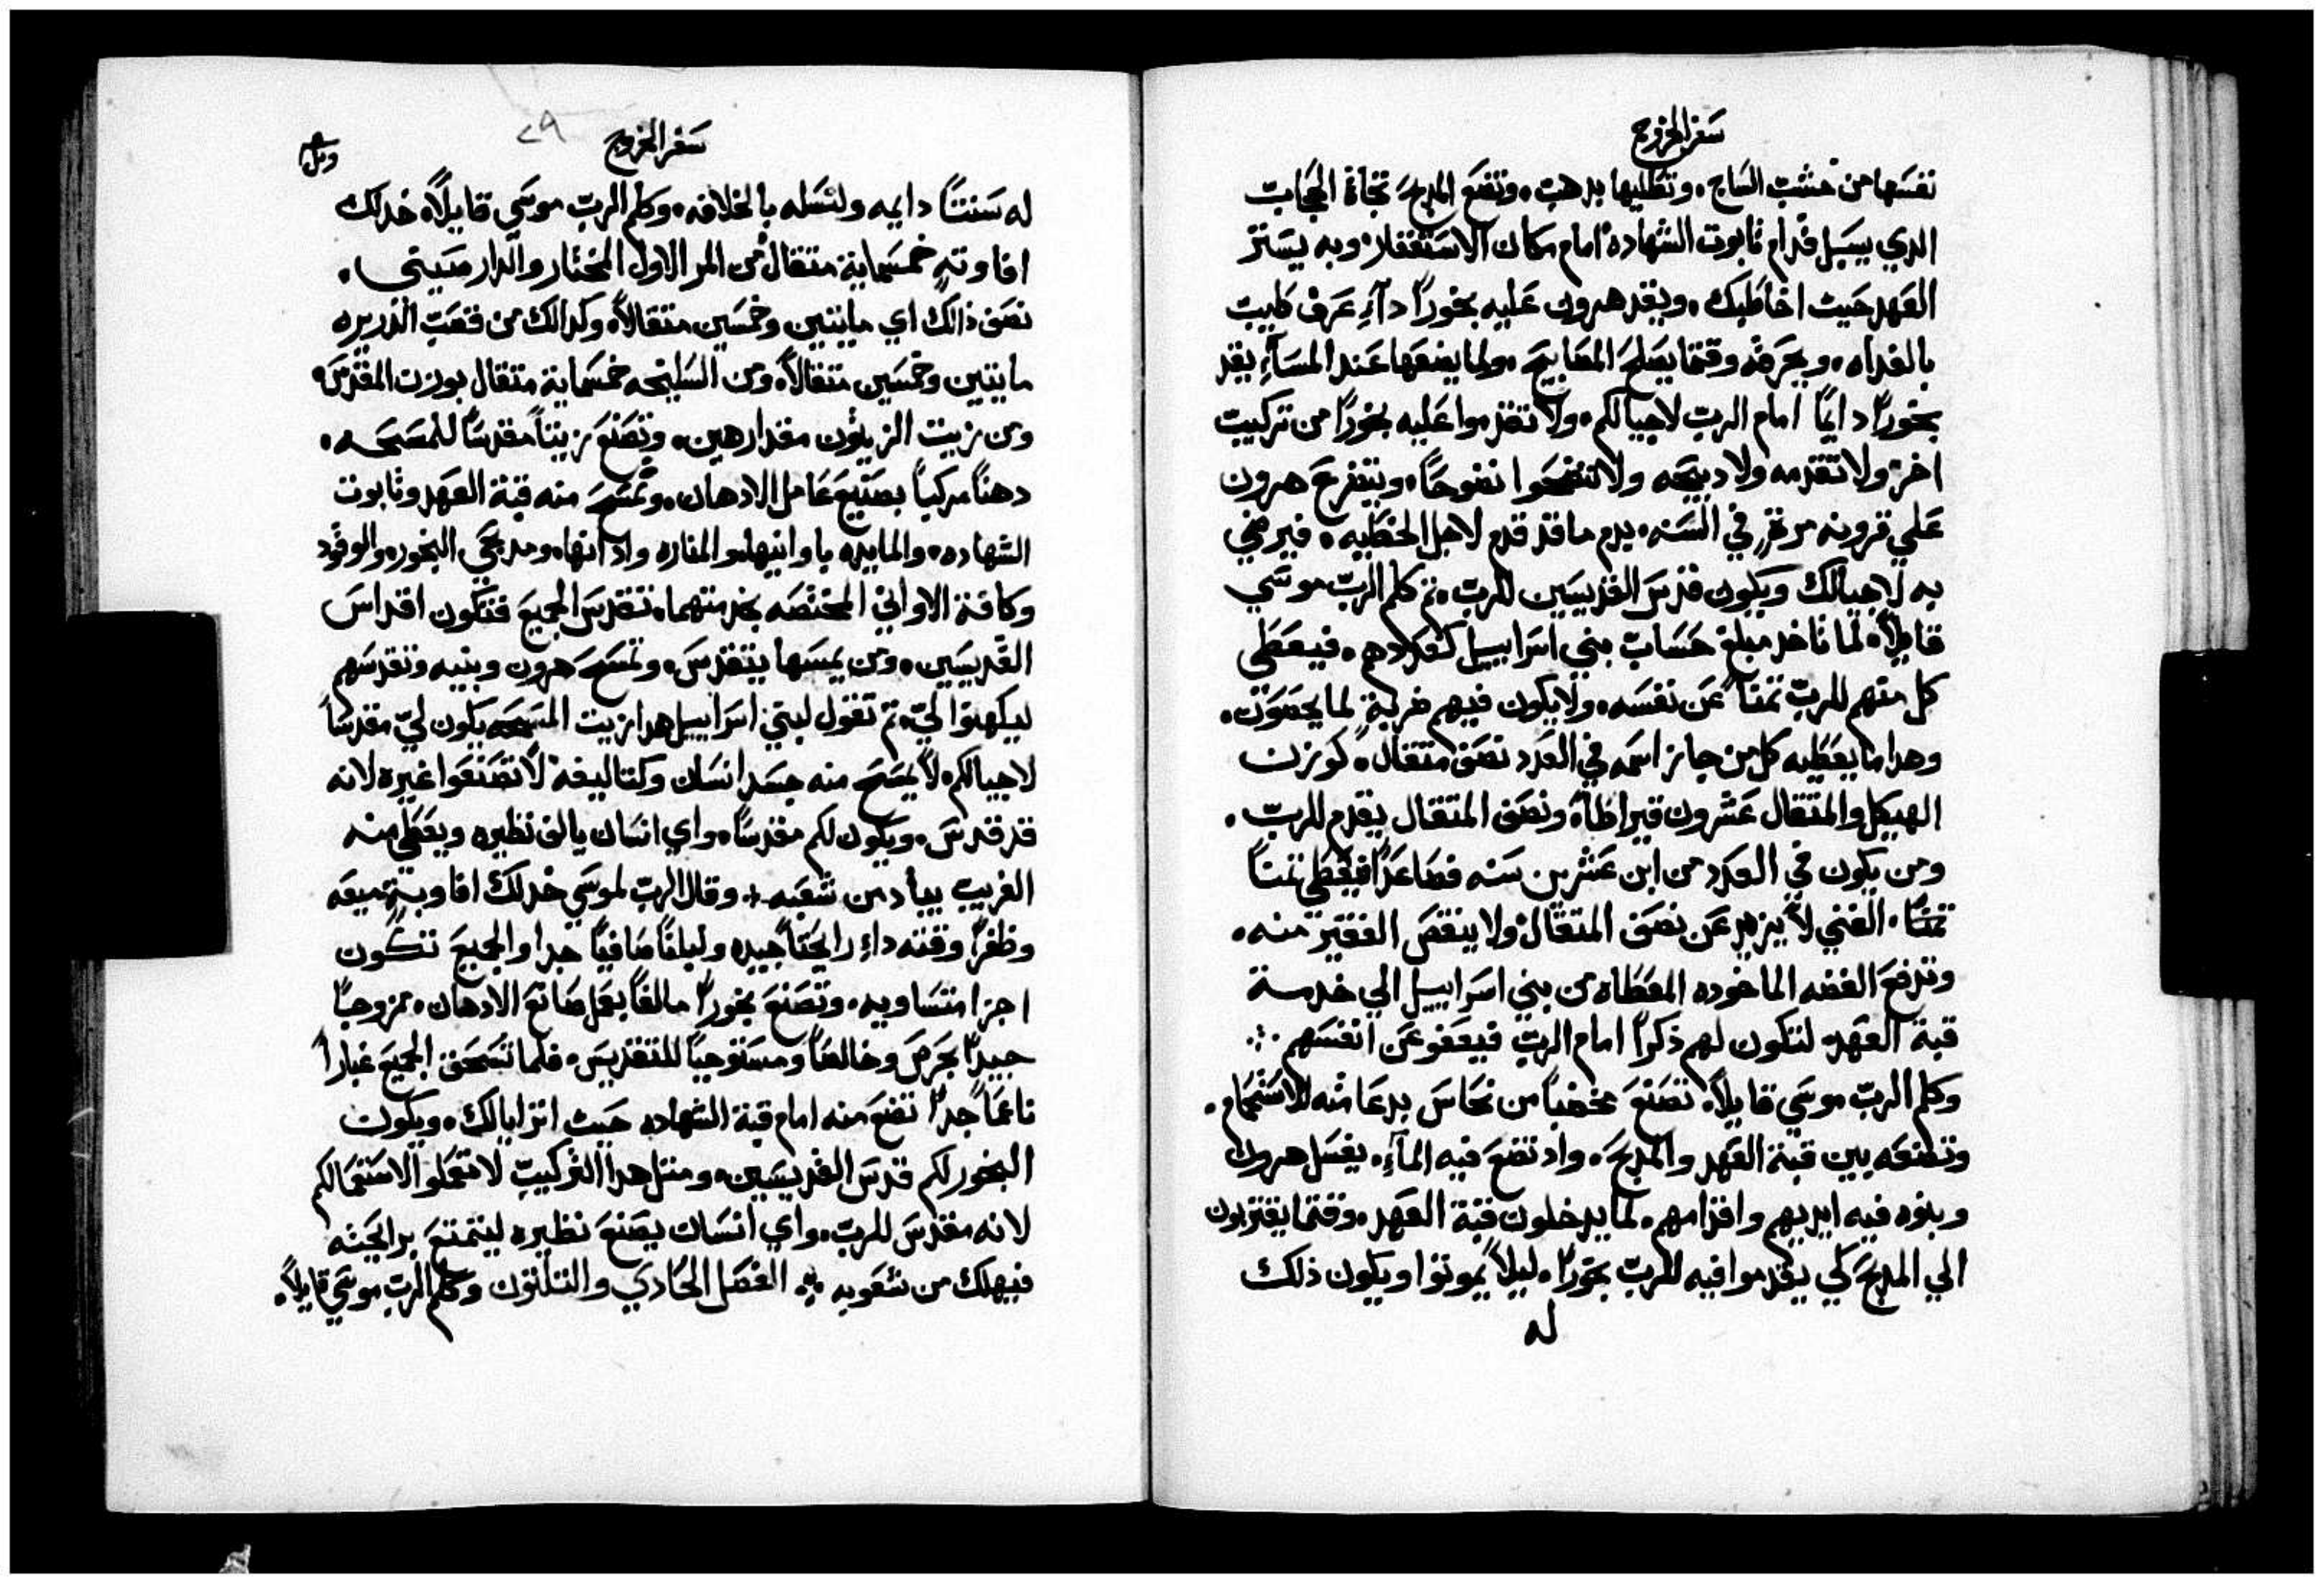 سفر الخروج
نفسها من خشب الساج. وتطليها بدهب. وتضع المدبح تجاة الحجاب
الدي يسبل قدام تابوت الشهاده امام مكان الاستغفار وبه يستتر
العهد حيث اخاطبك. ويقد هرون عليه بخوراً داءِ عرف طيب
بالغداه. ويحرقه وقتما يصلح المصابيح. ولما يضعها عند المساءِ يقد
بخوراً دايمًا امام الرب لاجيالكم. ولا تقدموا عليه بخوراً من تركيب
اخر ولا تقدمه ولا دبيحه ولا تنضحوا نضوحاً. ويتضرع هرون
علي قرونه مرةٍ في السنه. بدم ما قد قدم لاجل الخطيه. فيرضي
به لاجيالك ويكون قدس القديسين للرب. ثم كلم الرب موسي
قايلاً. لما تاخد مبلغ حساب بني اسراييل كعددهم. فيعطي
كل منهم للرب ثمناً عن نفسه. ولا يكون فيهم ضربةٍ لما يحصون.
وهدا ما يعطيه كل من جاز اسمه في العدد نصف متقال. كوزن
الهيكل والمتقال عشرون قيراطاً. ونصف المتقال يقدم للرب.
ومن يكون في العدد من ابن عشرين سنه فصاعداً فيعطي ثمناً
ثمناً. الغني لا يزيد عن نصف المتقال ولا ينقص الفقير منه.
وتدفع الفضه الماخوده المعطاه من بني اسراييل الي خدمة
قبة العهد. لتكون لهم ذكراً امام الرب فيعفو عن انفسهم.
وكلم الرب موسي قايلاً. تصنع مخضباً من نحاس بدعامته للاستحمام.
وتضعه بين قبة العهد والمدبح. واد تضع فيه الماءِ. يغسل هرون
وبنوه فيه ايديهم واقدامهم. لما يدخلون قبة العهد. وقتما يقتربون
الي المدبح كي يقدموا فيه للرب بخوراً. ليلاً يموتوا ويكون ذلك
له
سفر الخروج
٢٩
له سنتاً دايمه ولنسله بالخلافه. وكلم الرب موسي قايلاً. خد لك
افاوتهٍ خمسماية متقال من المر الاول المختار والدارصيني.
نصف ذالك اي مايتين وخمسين متقالاً. وكدالك من قصب الدريره
مايتين وخمسين متقالاً. ومن السليخه خمسماية متقال بوزن المقدس.
ومن زيت الزيتون مقدار هين. وتصنع زيتاً مقدساً للمسحه.
دهناً مركباً بصنيع عامل الادهان. وتمسح منه قبة العهد وتابوت
الشهاده. والمايده باوانيها. والمناره وادانها. ومدبحي البخور. والوقود
وكافة الاواني المختصه بخدمتهما. تقدس الجميع فتكون اقداس
القديسين. ومن يمسها يتقدس. وتمسح هرون وبنيه وتقدسهم
ليكهنوا لي. ثم تقول لبني اسراييل هدا زيت المسحه يكون لي مقدساً
لاجيالكم. لا يمسح منه جسد انسان وكتاليفه لا تصنعوا غيره لانه
قد قدس. ويكون لكم مقدساً. واي انسان يالف نظيره ويعطي منه
الغريب يباد من شعبه. وقال الرب لموسي خد لك افاوية ميعه
وظفراً وقنه داءِ رايحتاً جيده ولبلناً صافياً جدا والجميع تتكون
اجزا متساويه. وتصنع بخوراً مالفاً بعمل صانع الادهان. ممزوجاً
جيداً بحرص وخالصاً ومستوجباً للتقديس. فلما تسحق الجميع غباراً
ناعماً جداً تضع منه امام قبة الشهاده حيث اتراا لك. ويكون
البخور لكم قدس القديسين. ومتل هدا التركيب لا تعملوا لاستعمالكم
لانه مقدس للرب. واي انسان يصنع نظيره ليتمتع برايحته
فيهلك من شعوبه. الفصل الحادي والتلتون وكلم الرب موسي قايلاً.